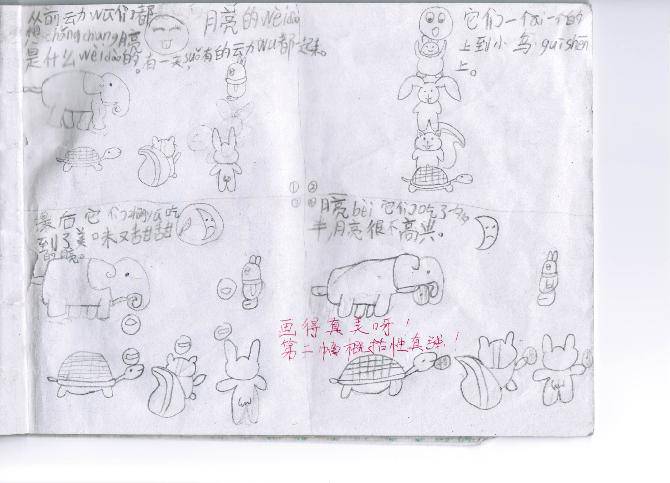 月亮的Weidao
从前云力wu们都
想chángchang月亮
是什么Weidao的。有一天,suǒ有的云力wu都一起来。
它们一个一个的
上到小鸟guishēn
上。
①②
③④
最后它们
到了美口味又甜甜
月亮bèi它们吃了
半月亮很不高兴。
画得真美呀!
第二幅概括性真强!